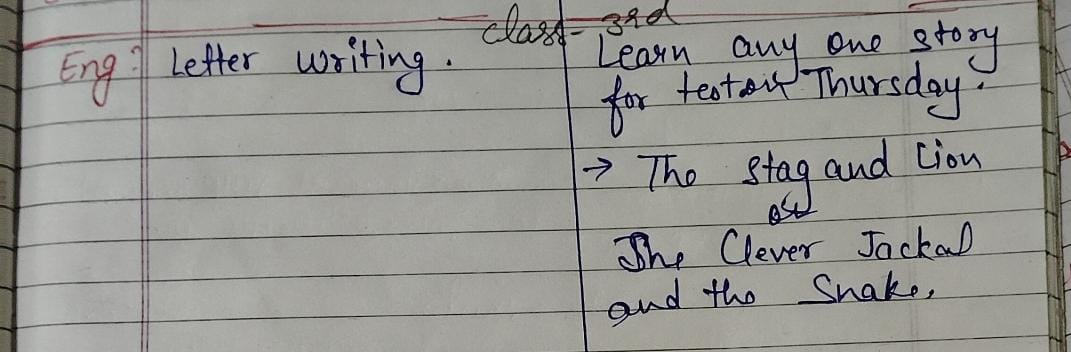 Class - 3rd
Eng: Letter writing.
Learn any one story
for test on Thursday.
→ The Stag and Lion
or
The Clever Jackal
and the Snake.